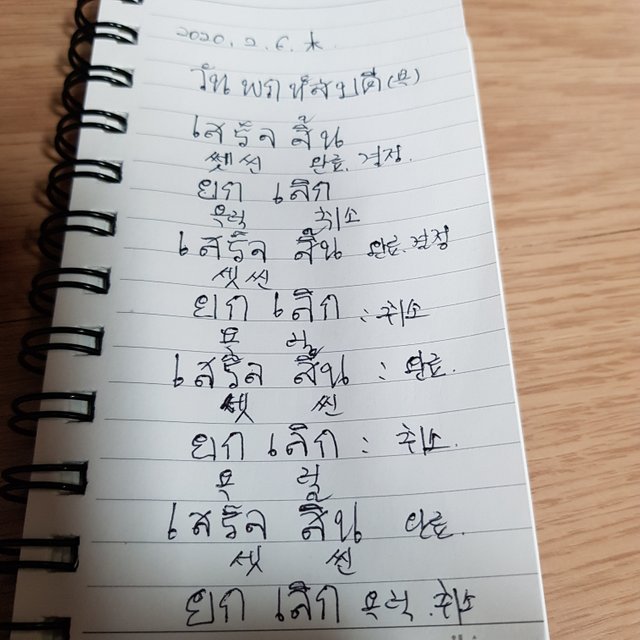 2020. 2. 6. 木.
วันพฤหัสบดี (목)
เสร็จ สิ้น
쎗 씬 완료, 결정.
ยก เลิก
욕럭 취소
เสร็จ สิ้น 완료. 결정
셋 씬
ยก เลิก : 취소
욕 럭
เสร็จ สิ้น : 완료.
쎗 씬
ยก เลิก : 취소.
욕 럭
เสร็จ สิ้น 완료.
쎗 씬
ยก เลิก 욕럭. 취소